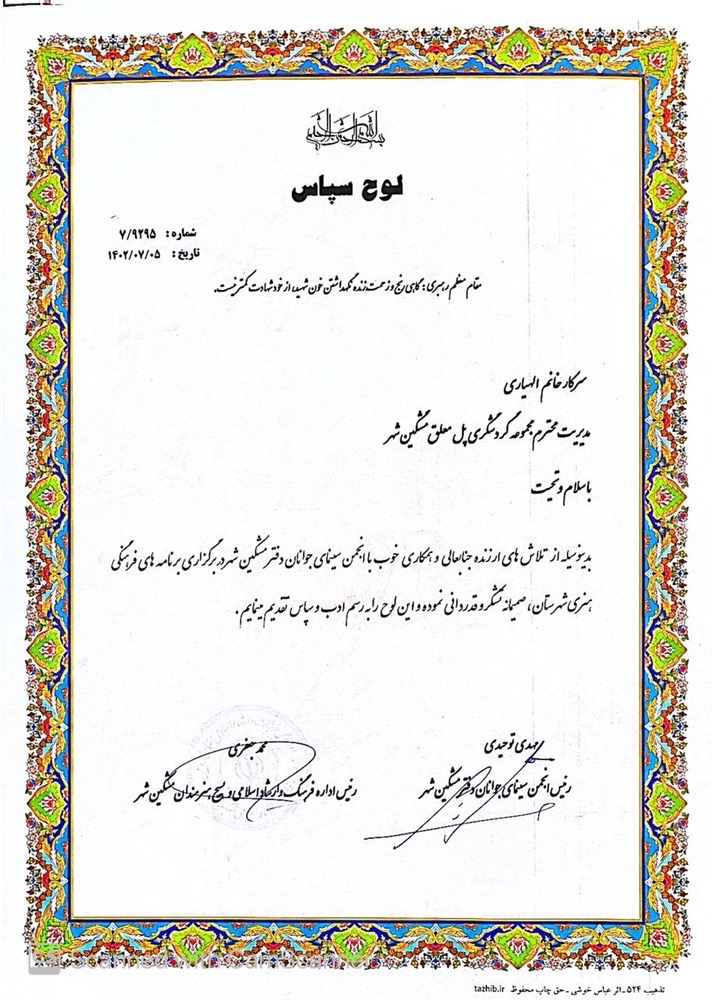 بسم الله الرحمن الرحیم
لوح سپاس
شماره: ۷/۹۲۹۵
تاریخ: ۱۴۰۲/۰۷/۰۵
مقام معظم رهبری: گاهی رنج و زحمت زنده نگهداشتن خون شهید، از خود شهادت کمتر نیست.
سرکار خانم الهیاری
مدیریت محترم مجموعه گردشگری پل معلق مشگین شهر
با سلام و تحیت
بدینوسیله از تلاش های ارزنده جنابعالی و همکاری خوب با انجمن سینمای جوانان دفتر مشگین شهر در برگزاری برنامه های فرهنگی
هنری شهرستان، صمیمانه تشکر و قدردانی نموده و این لوح را به رسم ادب و سپاس تقدیم مینمایم.
مهدی توحیدی
رئیس انجمن سینمای جوانان دفتر مشگین شهر
محمد جعفری
رئیس اداره فرهنگ و ارشاد اسلامی و بسیج هنرمندان مشگین شهر
تذهیب ۵۲۴ ـ اثر عباس خوشی ـ حق چاپ محفوظ tazhib.ir